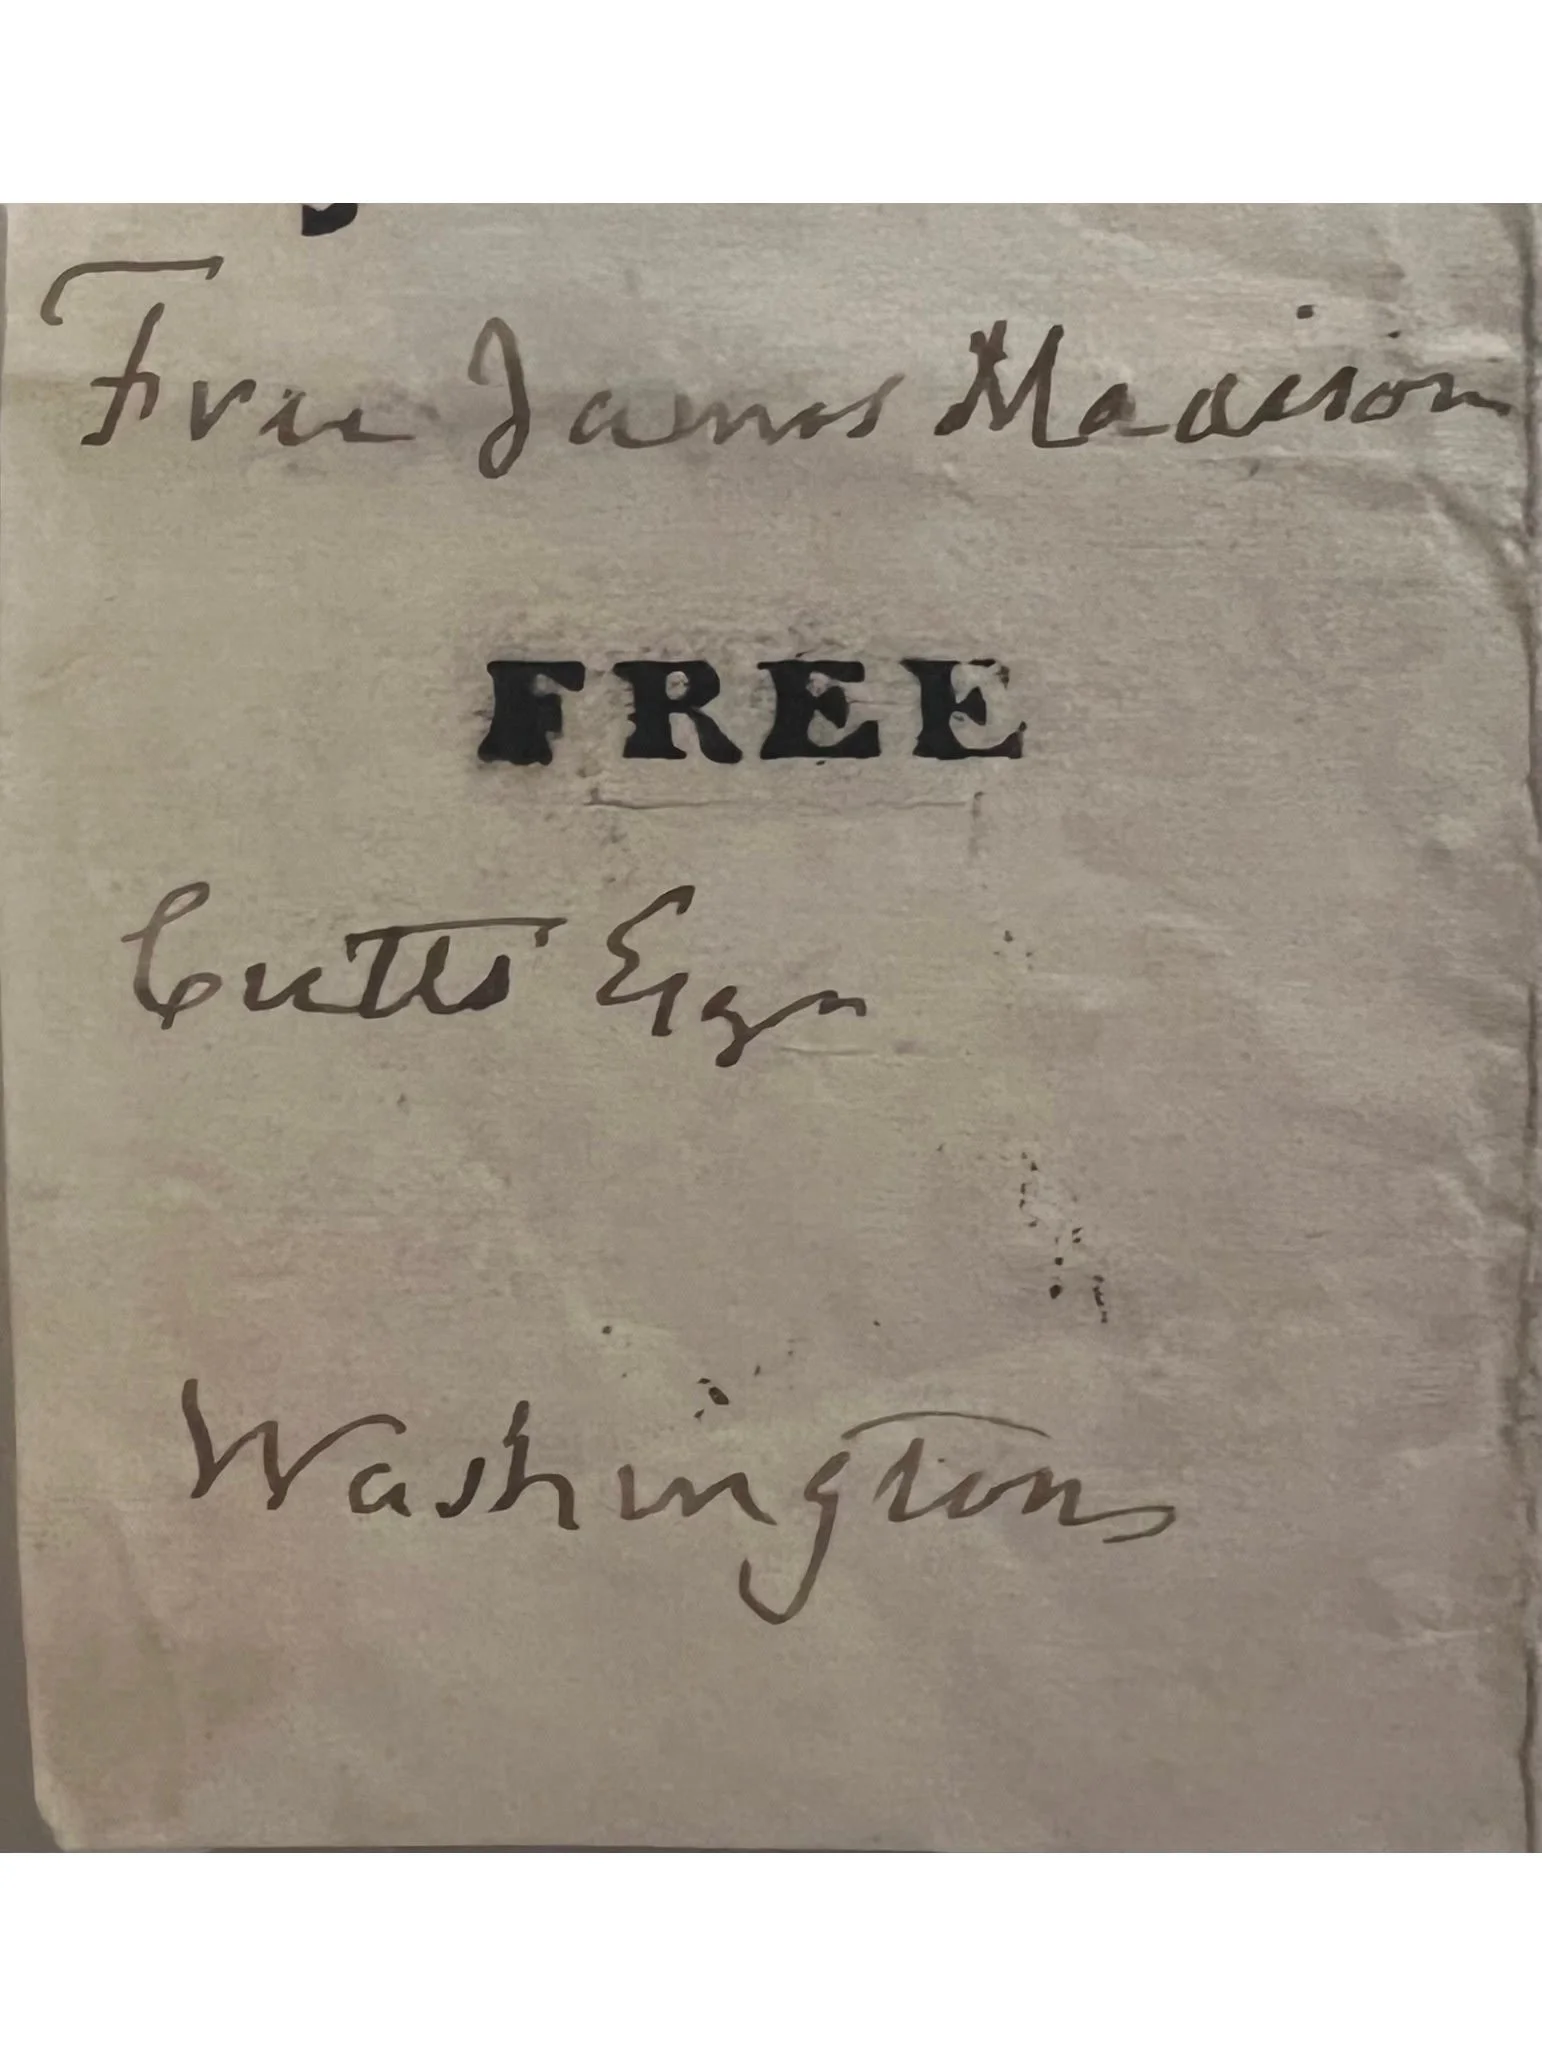 Free James Madison
FREE
Cutts Esqr
Washington